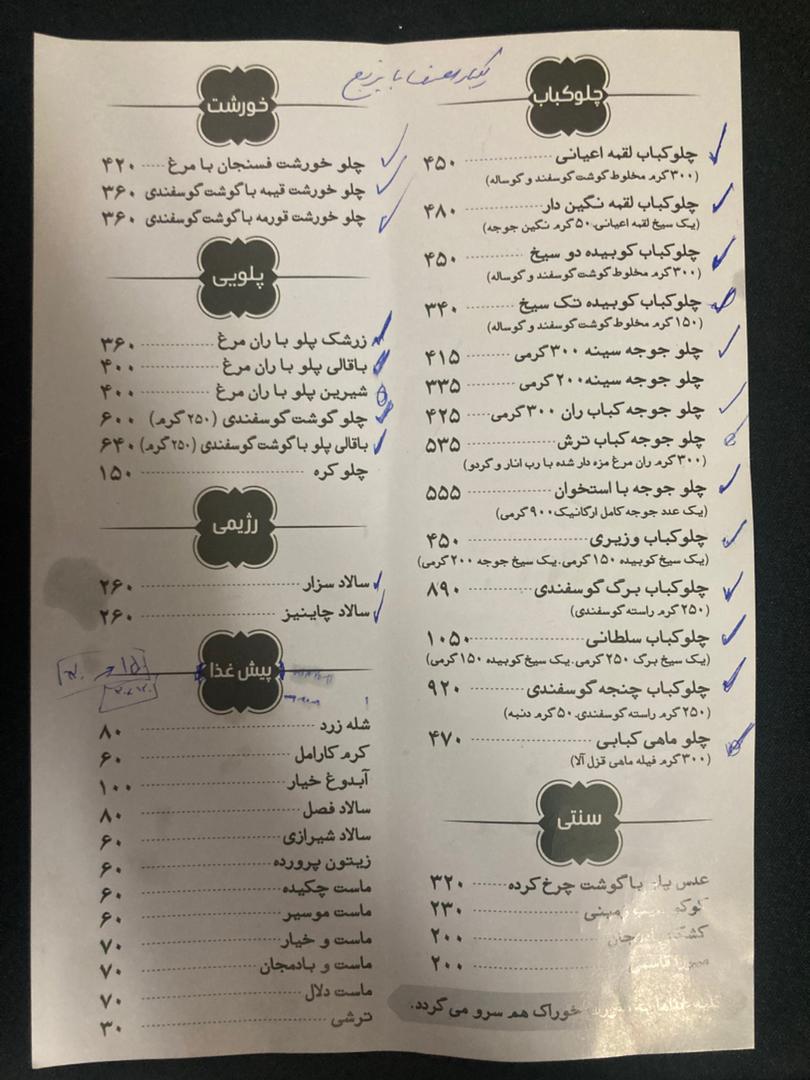 چلوکباب
چلوکباب لقمه اعیانی ۴۵۰
(۳۰۰ گرم مخلوط گوشت گوسفند و گوساله)
چلوکباب لقمه نگین دار ۴۸۰
(یک سیخ لقمه اعیانی، ۵۰ گرم نگین جوجه)
چلوکباب کوبیده دو سیخ ۴۵۰
(۳۰۰ گرم مخلوط گوشت گوسفند و گوساله)
چلوکباب کوبیده تک سیخ ۳۴۰
(۱۵۰ گرم مخلوط گوشت گوسفند و گوساله)
چلو جوجه سینه ۳۰۰ گرمی ۴۱۵
چلو جوجه سینه ۲۰۰ گرمی ۳۳۵
چلو جوجه کباب ران ۳۰۰ گرمی ۴۲۵
چلو جوجه کباب ترش ۵۳۵
(۳۰۰ گرم ران مرغ مزه دار شده با رب انار و گردو)
چلو جوجه با استخوان ۵۵۵
(یک عدد جوجه کامل ارگانیک ۹۰۰ گرمی)
چلوکباب وزیری ۴۵۰
(یک سیخ کوبیده ۱۵۰ گرمی، یک سیخ جوجه ۲۰۰ گرمی)
چلوکباب برگ گوسفندی ۸۹۰
(۲۵۰ گرم راسته گوسفندی)
چلوکباب سلطانی ۱۰۵۰
(یک سیخ برگ ۲۵۰ گرمی، یک سیخ کوبیده ۱۵۰ گرمی)
چلوکباب چنجه گوسفندی ۹۲۰
(۲۵۰ گرم راسته گوسفندی، ۵۰ گرم دنبه)
چلو ماهی کبابی ۴۷۰
(۳۰۰ گرم فیله ماهی قزل آلا)
سنتی
عدس پلو با گوشت چرخ کرده ۳۲۰
کوکو سیب زمینی ۲۳۰
کشک بادمجان ۲۰۰
میرزا قاسمی ۲۰۰
کلیه غذاها به صورت خوراک هم سرو می گردد.
خورشت
چلو خورشت فسنجان با مرغ ۴۲۰
چلو خورشت قیمه با گوشت گوسفندی ۳۶۰
چلو خورشت قورمه با گوشت گوسفندی ۳۶۰
پلویی
زرشک پلو با ران مرغ ۳۶۰
باقالی پلو با ران مرغ ۴۰۰
شیرین پلو با ران مرغ ۴۰۰
چلو گوشت گوسفندی (۲۵۰ گرم) ۶۰۰
باقالی پلو با گوشت گوسفندی (۲۵۰ گرم) ۶۴۰
چلو کره ۱۵۰
رژیمی
سالاد سزار ۲۶۰
سالاد چاینیز ۲۶۰
پیش غذا
شله زرد ۸۰
کرم کارامل ۶۰
آبدوغ خیار ۱۰۰
سالاد فصل ۸۰
سالاد شیرازی ۶۰
زیتون پرورده ۶۰
ماست چکیده ۶۰
ماست موسیر ۶۰
ماست و خیار ۷۰
ماست و بادمجان ۷۰
ماست دلال ۷۰
ترشی ۳۰